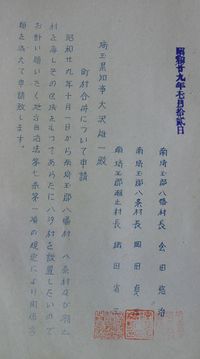 昭和廿九年七月拾弐日
南埼玉郡八幡村長 会田
南埼玉郡八条村長 岡田
南埼玉郡潮止村長 田
埼玉県知事 大沢雄一殿
町村合併について申請
昭和廿九年十月一日から南埼玉郡八幡村 八条村及び潮止
村を廃しその区域をもってあらたに八潮村を設置したいので
お計い願いたく地方自治法第七条第一項の規定により関係書
類を添えて申請致します